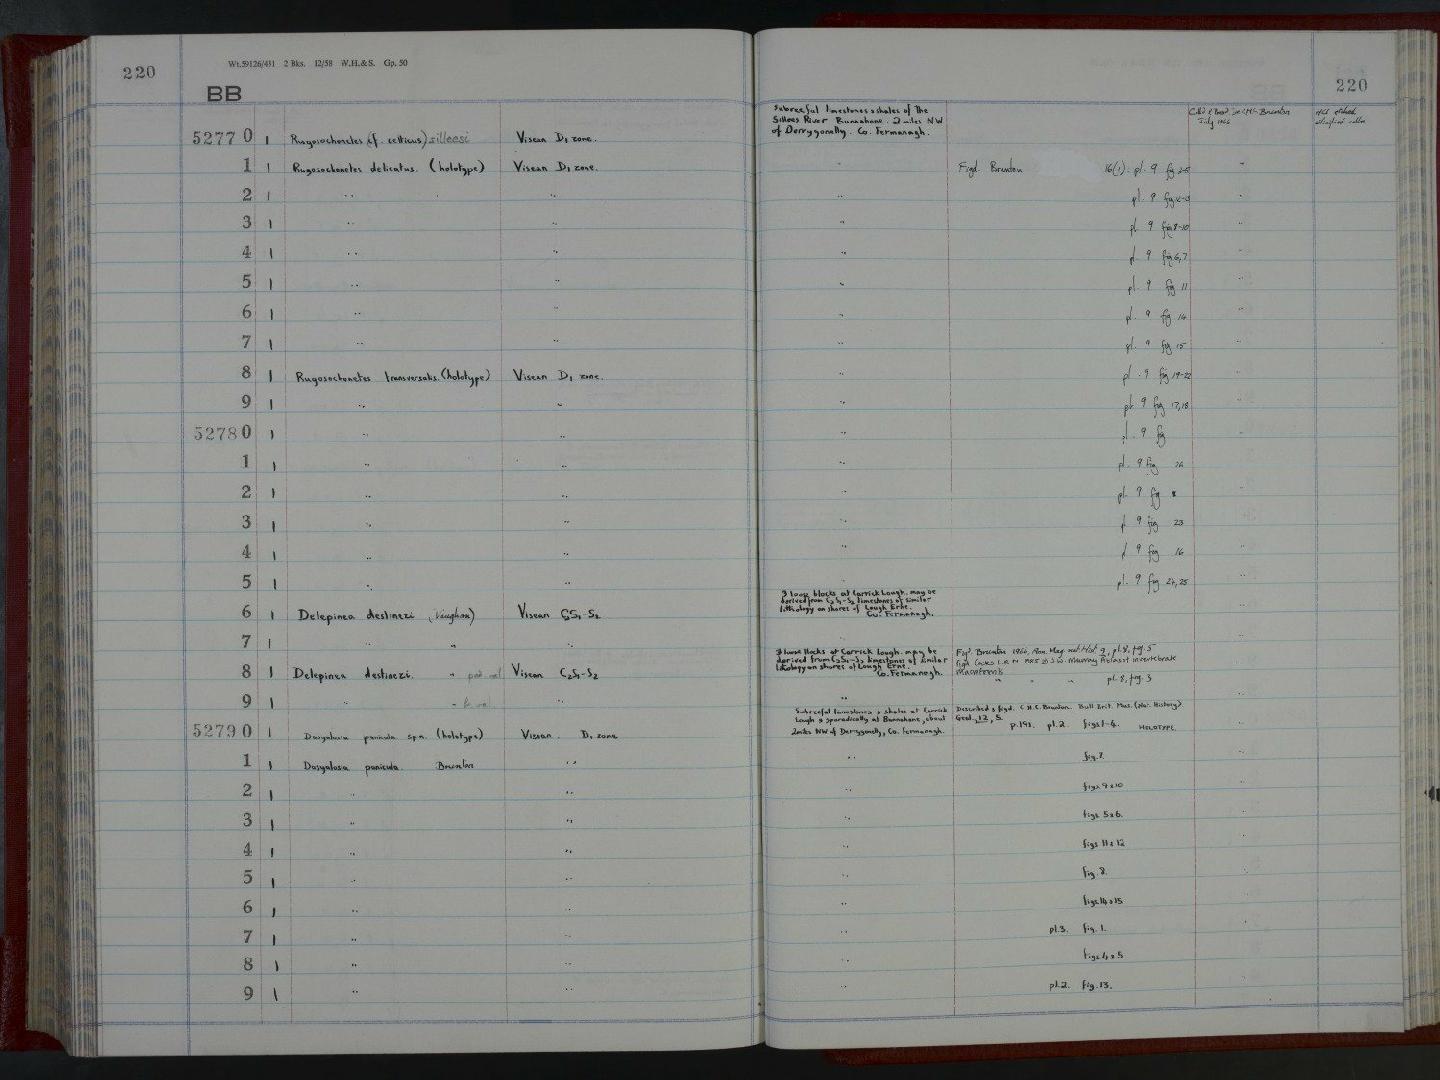 220
Wt.59126/431 2 Bks. 12/58 W.H.&S. Gp. 50
BB
220
52770 1 Rugosochonetes (cf. celticus) silleesi Visean D1 zone. Subreefal limestones & shales of the
Sillees River Bunnahone. 2 miles NW
of Derrygonelly. Co. Fermanagh.
July 1966
1 1 Rugosochonetes delicatus. (holotype) Visean D1 zone. " Figd. Brunton 16(1). pl. 9 fig "
2 1 " " " pl. 9 fig "
3 1 " " " pl. 9 fig 8-10 "
4 1 " " " pl. 9 fig 6,7 "
5 1 " " " pl. 9 fig 11 "
6 1 " " " pl. 9 fig 14 "
7 1 " " " pl. 9 fig 15 "
8 1 Rugosochonetes transversalis. (holotype) Visean D1 zone. " pl. 9 fig 19-22 "
9 1 " " " pl. 9 fig 17,18 "
52780 1 " " " pl. 9 fig "
1 1 " " " pl. 9 fig "
2 1 " " " pl. 9 fig "
3 1 " " " pl. 9 fig 23
4 1 " " " pl. 9 fig 16 "
5 1 " " " pl. 9 fig 24,25 "
6 1 Delepinea destinezi (Vaughan) Visean C2S1-S2 3 loose blocks at Carrick Lough. may be
derived from C2S1-S2 limestones of similar
lithology on shores of Lough Erne.
Co. Fermanagh.
7 1 " "
8 1 Delepinea destinezi. " Visean C2S1-S2 3 loose blocks at Carrick Lough. may be
derived from C2S1-S2 limestones of similar
lithology on shores of Lough Erne.
Co. Fermanagh.
Figd. Brunton 1966, Ann. Mag. nat. Hist. 9, pl.8, fig.5
" " pl.8, fig.3
9 1 " " "
52790 1 Dasyalosia panicula sp.n. (holotype) Visean D1 zone Subreefal limestones & shales at Carrick
Lough & sporadically at Bunnahone, about
2 miles NW of Derrygonelly, Co. Fermanagh.
Described & figd. C.H.C. Brunton. Bull Brit. Mus. (Nat. History)
Geol, 12, 5. p.193. pl.2. figs 1-4. HOLOTYPE.
1 1 Dasyalosia panicula. Brunton " " fig.7.
2 1 " " " figs 9 & 10
3 1 " " " figs 5 & 6.
4 1 " " " figs 11 & 12
5 1 " " " fig. 8.
6 1 " " " figs 14 & 15
7 1 " " " pl.3. fig. 1.
8 1 " " " figs 4 & 5
9 1 " " " pl.2. fig. 13.